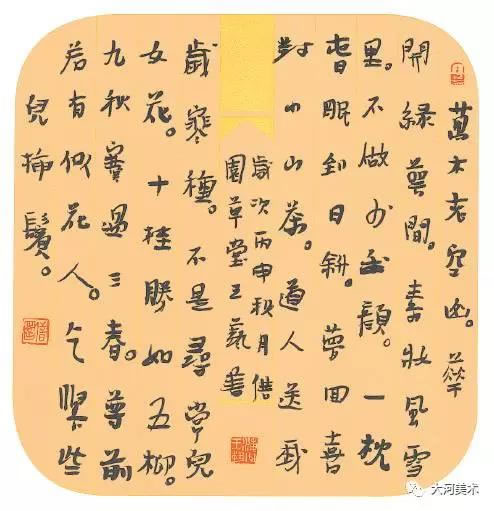 萬木老空山。花
開綠萼間。素妝風雪
里。不做少年顏。一枕
春眠到日斜。夢回喜
對小山茶。道人送我
歲寒種。不是尋常兒
女花。十桂勝如五柳。
九秋賽過三春。尊前
若有似花人。乞與些
兒插鬢。
歲次丙申秋月借
園草堂王書
大河美术